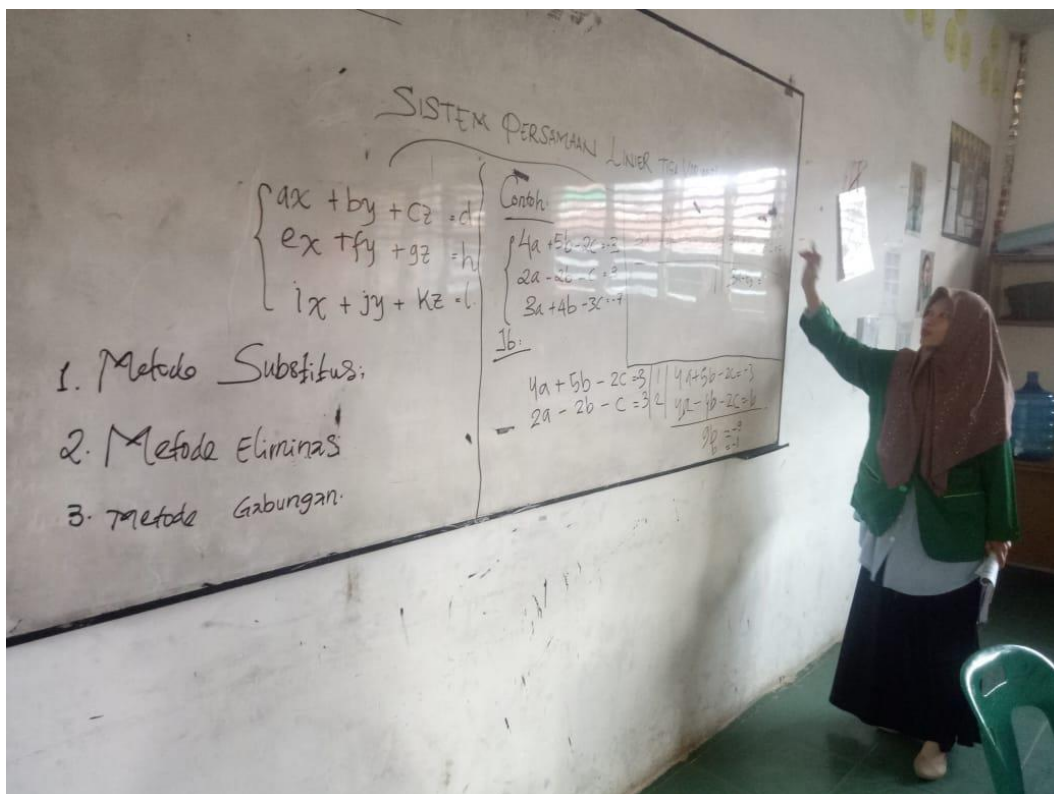 SISTEM PERSAMAAN LINIER TIGA
ax + by + cz = d
ex + fy + gz = h
ix + jy + kz = l
1. Metode Substitusi
2. Metode Eliminasi
3. Metode Gabungan.
Contoh:
4a + 5b - 2c = -3
2a - 2b - c = 3
3a + 4b - 3c = -7
Jb:
4a + 5b - 2c = -3 | 1 | 4a + 5b - 2c = -3
2a - 2b - c = 3 | 2 | 4a - 4b - 2c = 6
9b = -9
b = -1